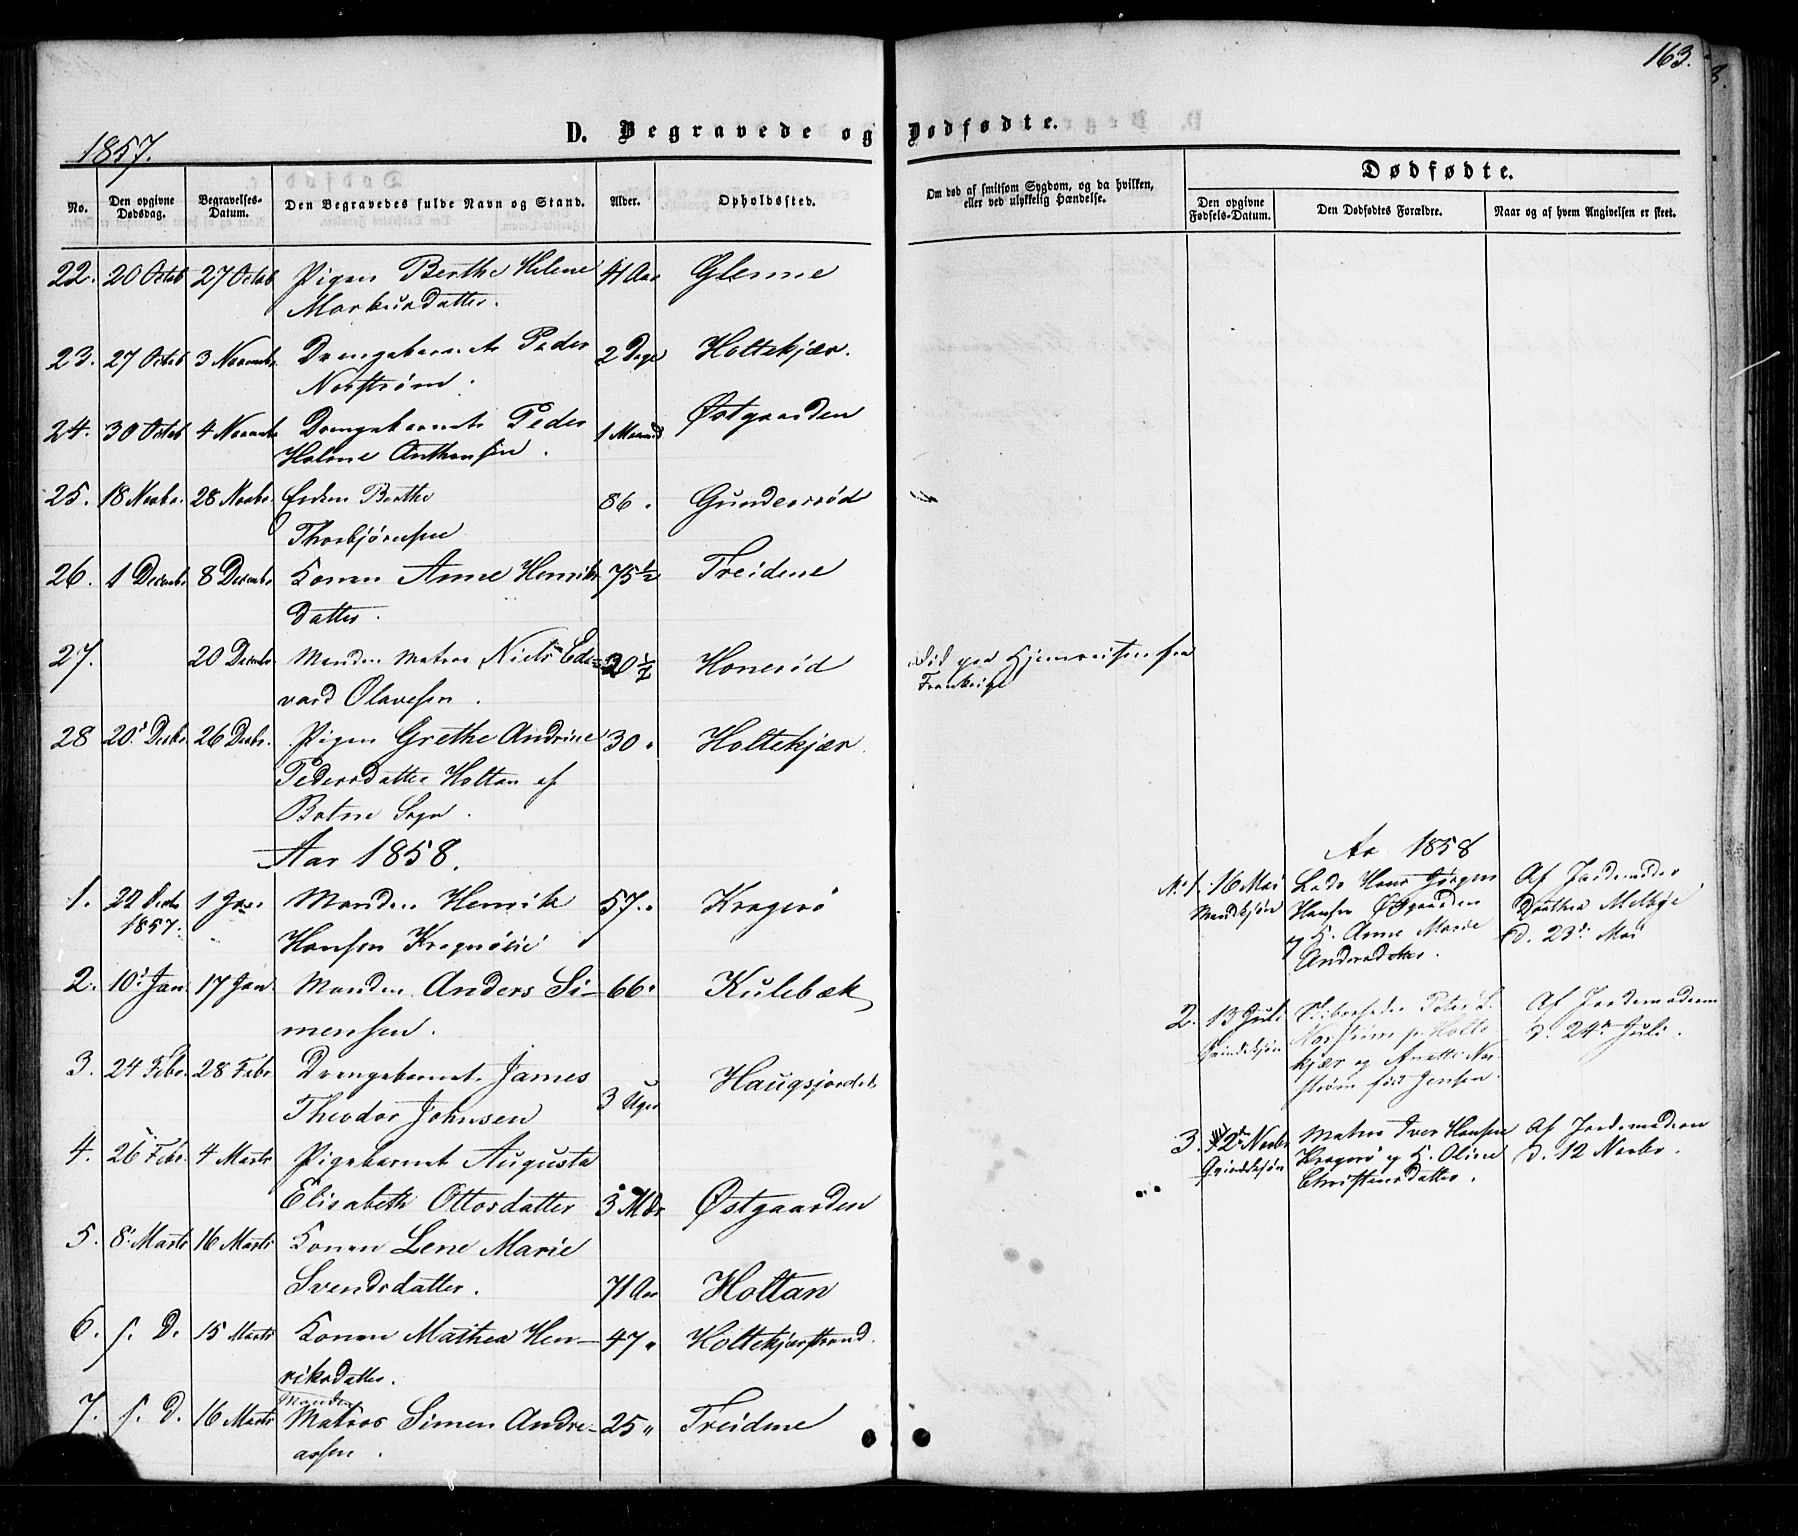 163.
1857.
D. Begravede og Dødfødte.
No.
Den opgivne Dødsdag.
Begravelses-Datum.
Den Begravedes fulde Navn og Stand.
Alder.
Opholdssted.
Om død af smitsom Sygdom, og da hvilken, eller ved ulykkelig Hændelse.
Dødfødte.
Den opgivne Fødsels-Datum.
Den Dødfødtes Forældre.
Naar og af hvem Angivelsen er skeet.
22. 20 Octob 27 Octob Pigen Berthe Helene 41 Aar Glenne
Markusdatter.
23. 27 Octob 3 Novembr Drengebarnet Peder 2 Dage Holtekjær.
Norstrøm.
24. 30 Octob 4 Novembr Drengebarnet Peder 1 Maaned Østgaarden
Holme Anthonsen.
25. 18 Novbr. 28 Novbr. Enken Berthe 86. Gunderrød
Thorbjørnsen
26. 1 Decembr 8 Decembr Konen Anne Henriks 75 1/2 Freidene
datter.
27. 20 Decembr. Manden Matros Niels Ed- 30 1/2 Honerød Død paa Hjemreisen fra
vard Olavesen. Frankrige
28 20de Decbr. 26 Decbr. Pigen Grethe Andrine 30. Holtekjær.
Pedersdatter Holtan af
Botne Sogn.
Aar 1858.
1. 22 Decbr 1857. 1 Jan. Manden Henrik 57. Kragerö
Hansen
2. 10de Jan 17 Jan Manden Anders Si- 66. Kulebæk
mensen.
3. 24 Febr. 28 Febr Drengebarnet James 3 Uger Haugsjordet
Theodor Johnsen
4. 26 Febr. 4 Marts Pigebarnet Augusta
Elisabeth Ottosdatter 3 Mdr Østgaarden
5. 8de Marts 16 Marts Konen Lene Marie
Svendsdatter. 71 Aar Holtan
6. s. D. 15 Marts Konen Mathea Hen- 47. Holtekjærstrand.
riksdatter.
7. s. D. 16 Marts Manden
Matros Simen Andre- 25 " Freidene
assen.
Aar 1858
No 1. 16 Mai Lods Hans Jørgen Af Jordemoder
Mandkjøn Hansen Østgaarden Dorthea Melbye
og H. Anne Marie d. 23de Mai
Andersdatter.
2. 13 Juli Peter L. Af Jordemoderen
Qvindekjøn Norstrøm p. Holte- d. 24de Juli.
kjær og Anette Nor-
strøm fød Jensen.
3. 2de Novbr Matros Iver Hansen Af Jordemoderen
Qvindekjøn Kragerö og H. Oline d. 12 Novbr.
Christensdatter.